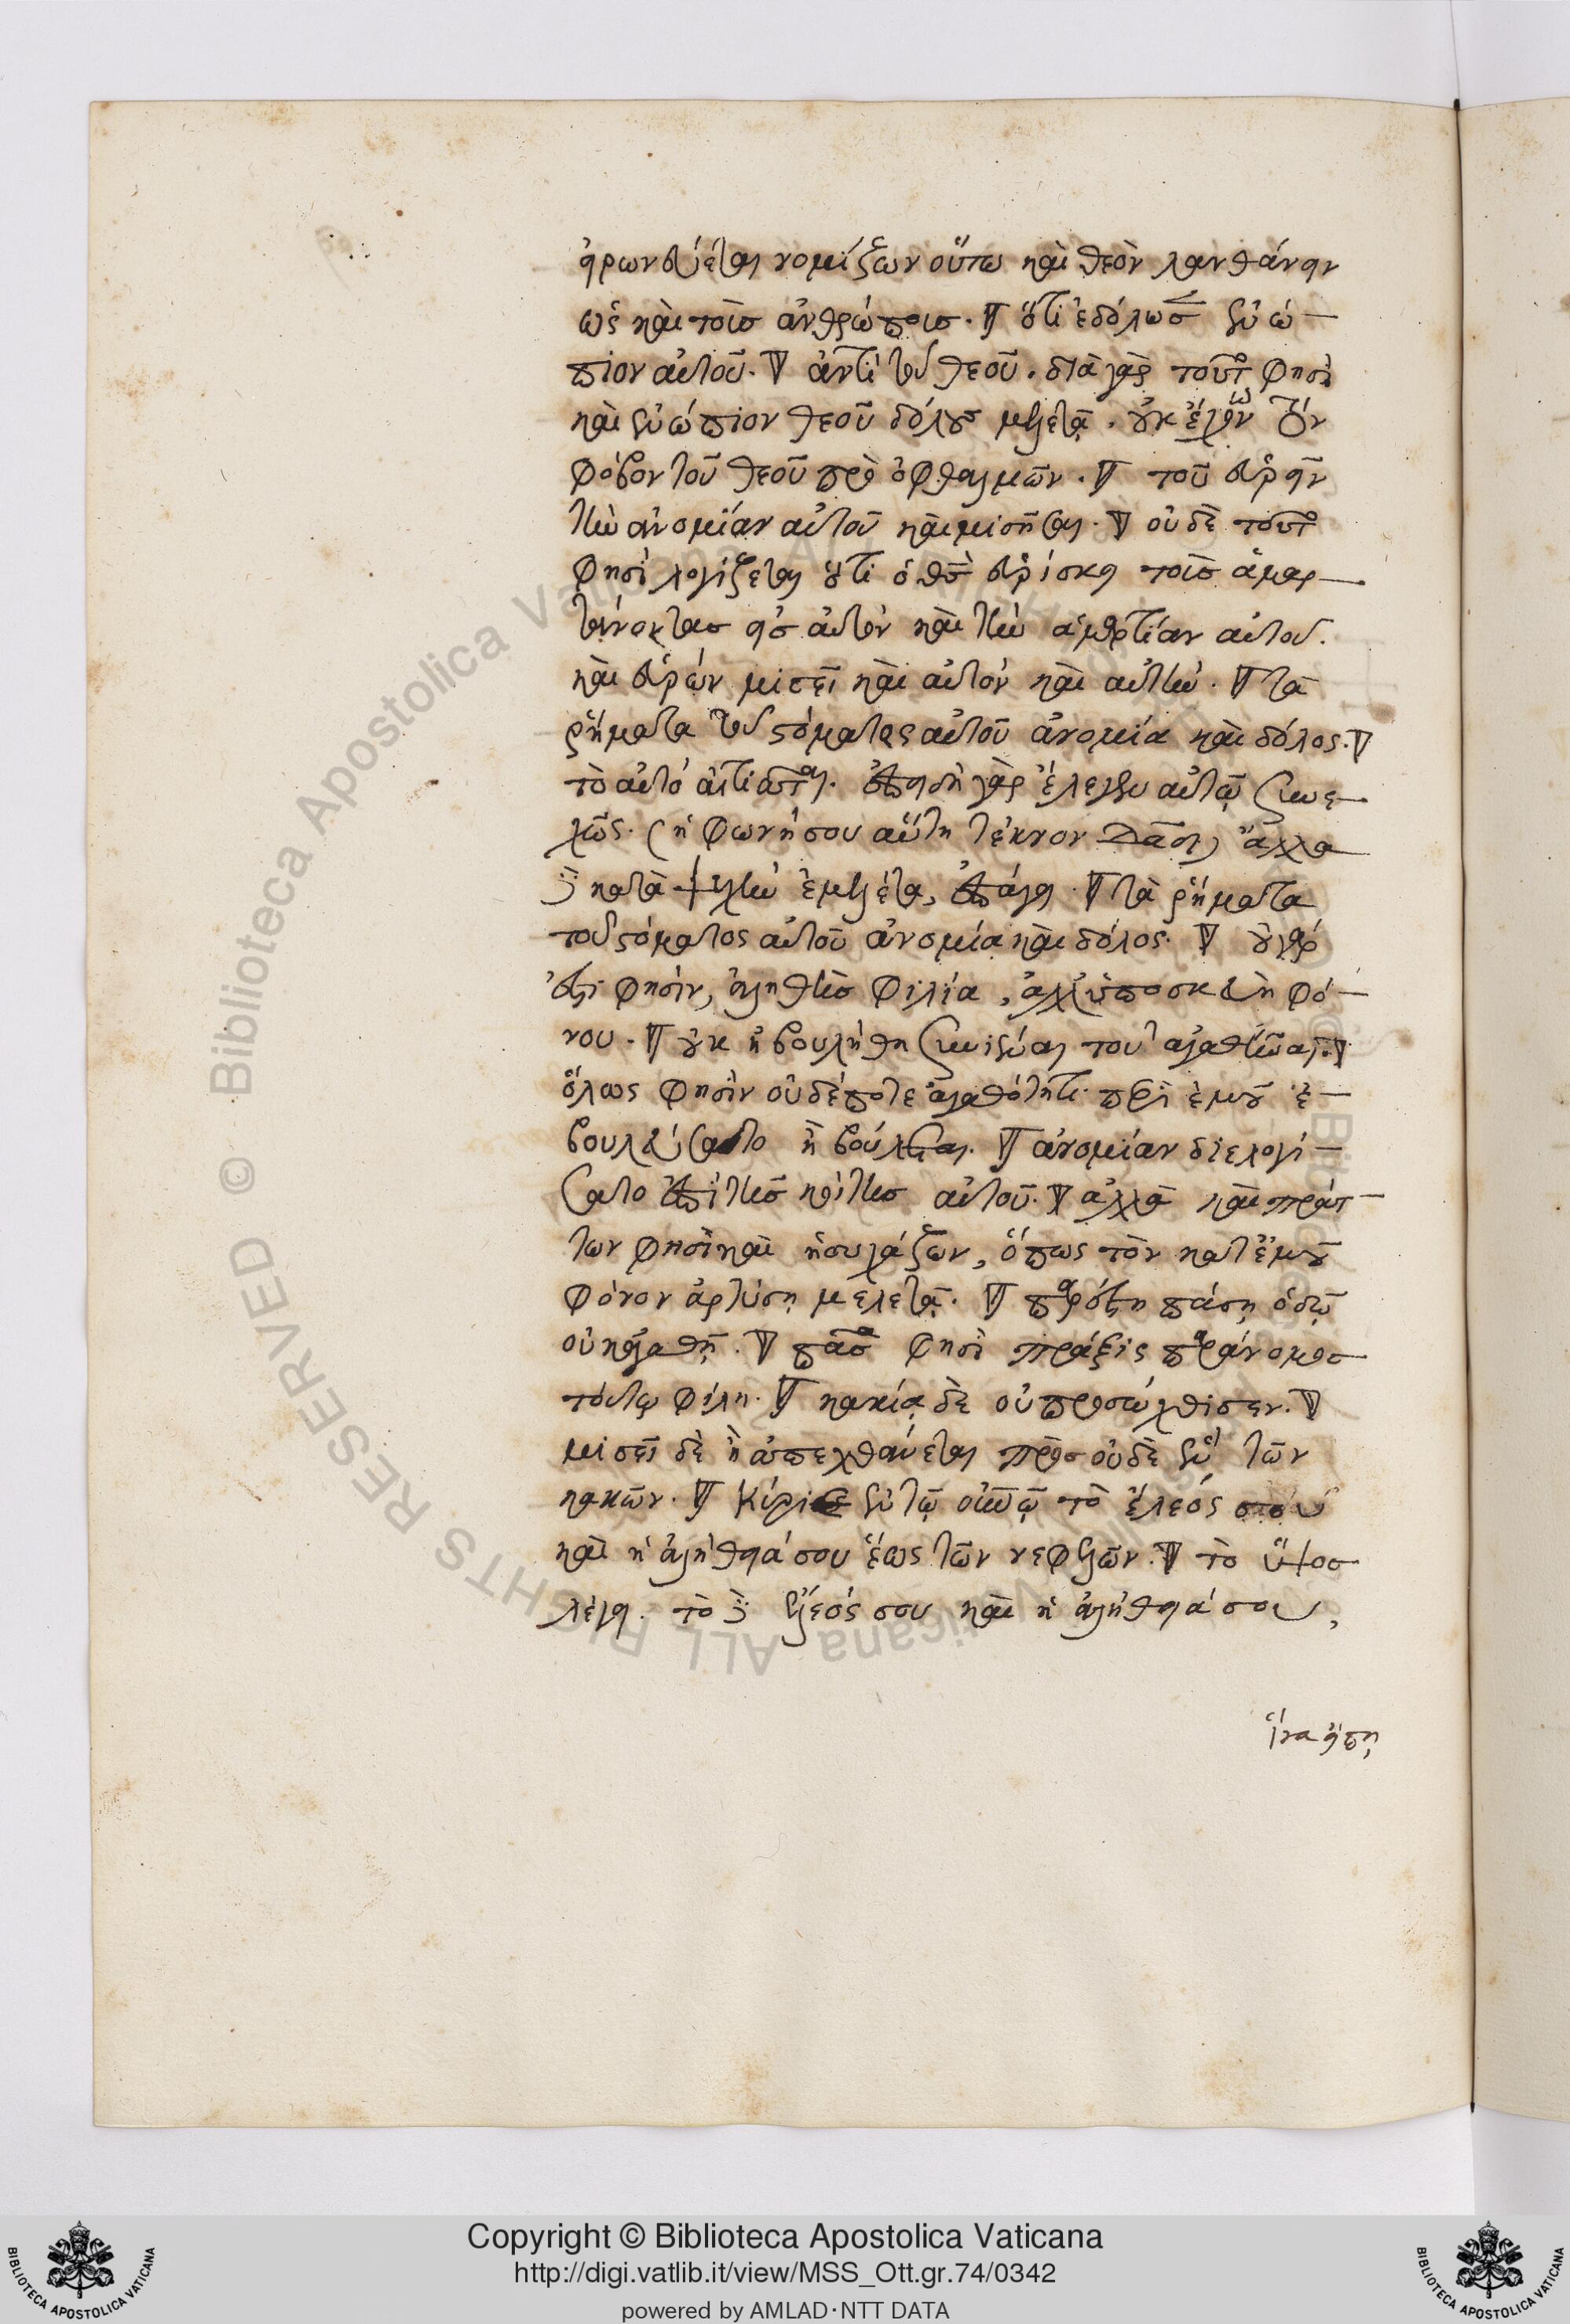 ειρωνεύεται νομίζων οὕτω καὶ θεὸν λανθάνειν
ὡς καὶ τοῖς ἀνθρώποις. ὅτι ἐδόλωσεν ἐνώ—
πιον αὐτοῦ. ἀντὶ τοῦ θεοῦ. διὰ γὰρ τοῦτο φησὶ
καὶ ἐνώπιον θεοῦ δόλους μελετᾷ. οὐκ ἔχων τὸν
φόβον τοῦ θεοῦ πρὸ ὀφθαλμῶν. τοῦ εὑρεῖν
τὴν ἀνομίαν αὐτοῦ καὶ μισῆσαι. οὐδὲ τοῦτο
φησὶ λογίζεται ὅτι ὁ θς εὑρίσκει τοῖς ἁμαρ—
τάνοντας εἰς αὐτὸν καὶ τὴν ἁμαρτίαν αὐτοῦ.
καὶ εὑρὼν μισεῖ καὶ αὐτὸν καὶ αὐτήν. τὰ
ῥήματα τοῦ στόματος αὐτοῦ ἀνομία καὶ δόλος.
τὸ αὐτὸ αἰτιᾶται. ἐπειδὴ γὰρ ἔλεγεν αὐτῷ συνε—
χῶς. (ἡ φωνή σου αὕτη τέκνον Δαδ) ἄλλα
δὲ κατὰ ψυχὴν ἐμελέτα, ἐπάγει. τὰ ῥήματα
τοῦ στόματος αὐτοῦ ἀνομία καὶ δόλος. οὐ γάρ
ἐστι φησίν, ἀληθὴς φιλία, ἀλλ' ὑποσκευὴ φό—
νου. οὐκ ἠβουλήθη συνιέναι τοῦ ἀγαθῦναι.
ὅλως φησὶν οὐδέποτε ἀγαθότητι περὶ ἐμοῦ ἐ—
βουλεύσατο ἢ βούλεται. ἀνομίαν διελογί—
σατο ἐπὶ τῆς κοίτης αὐτοῦ. ἀλλὰ καὶ πράτ—
των φησὶ καὶ ἡσυχάζων, ὅπως τὸν κατ' ἐμοῦ
φόνον ἀρτύσῃ μελετᾷ. παρέστη πάσῃ ὁδῷ
οὐκ ἀγαθῇ. πᾶσα φησὶ πρᾶξις παράνομος
τούτῳ φίλη. κακίᾳ δὲ οὐ προσώχθισεν.
μισεῖ δὲ ἢ ἀπεχθάνεται πρὸς οὐδὲ ἓν τῶν
κακῶν. Κύριε ἐν τῷ οὐνῷ τὸ ἔλεός σου
καὶ ἡ ἀλήθειά σου ἕως τῶν νεφελῶν. τὸ ὕψος
λέγει. τὸ δὲ ἔλεός σου καὶ ἡ ἀλήθειά σου,
ἵνα εἴπῃ
Copyright © Biblioteca Apostolica Vaticana
http://digi.vatlib.it/view/MSS_Ott.gr.74/0342
powered by AMLAD·NTT DATA